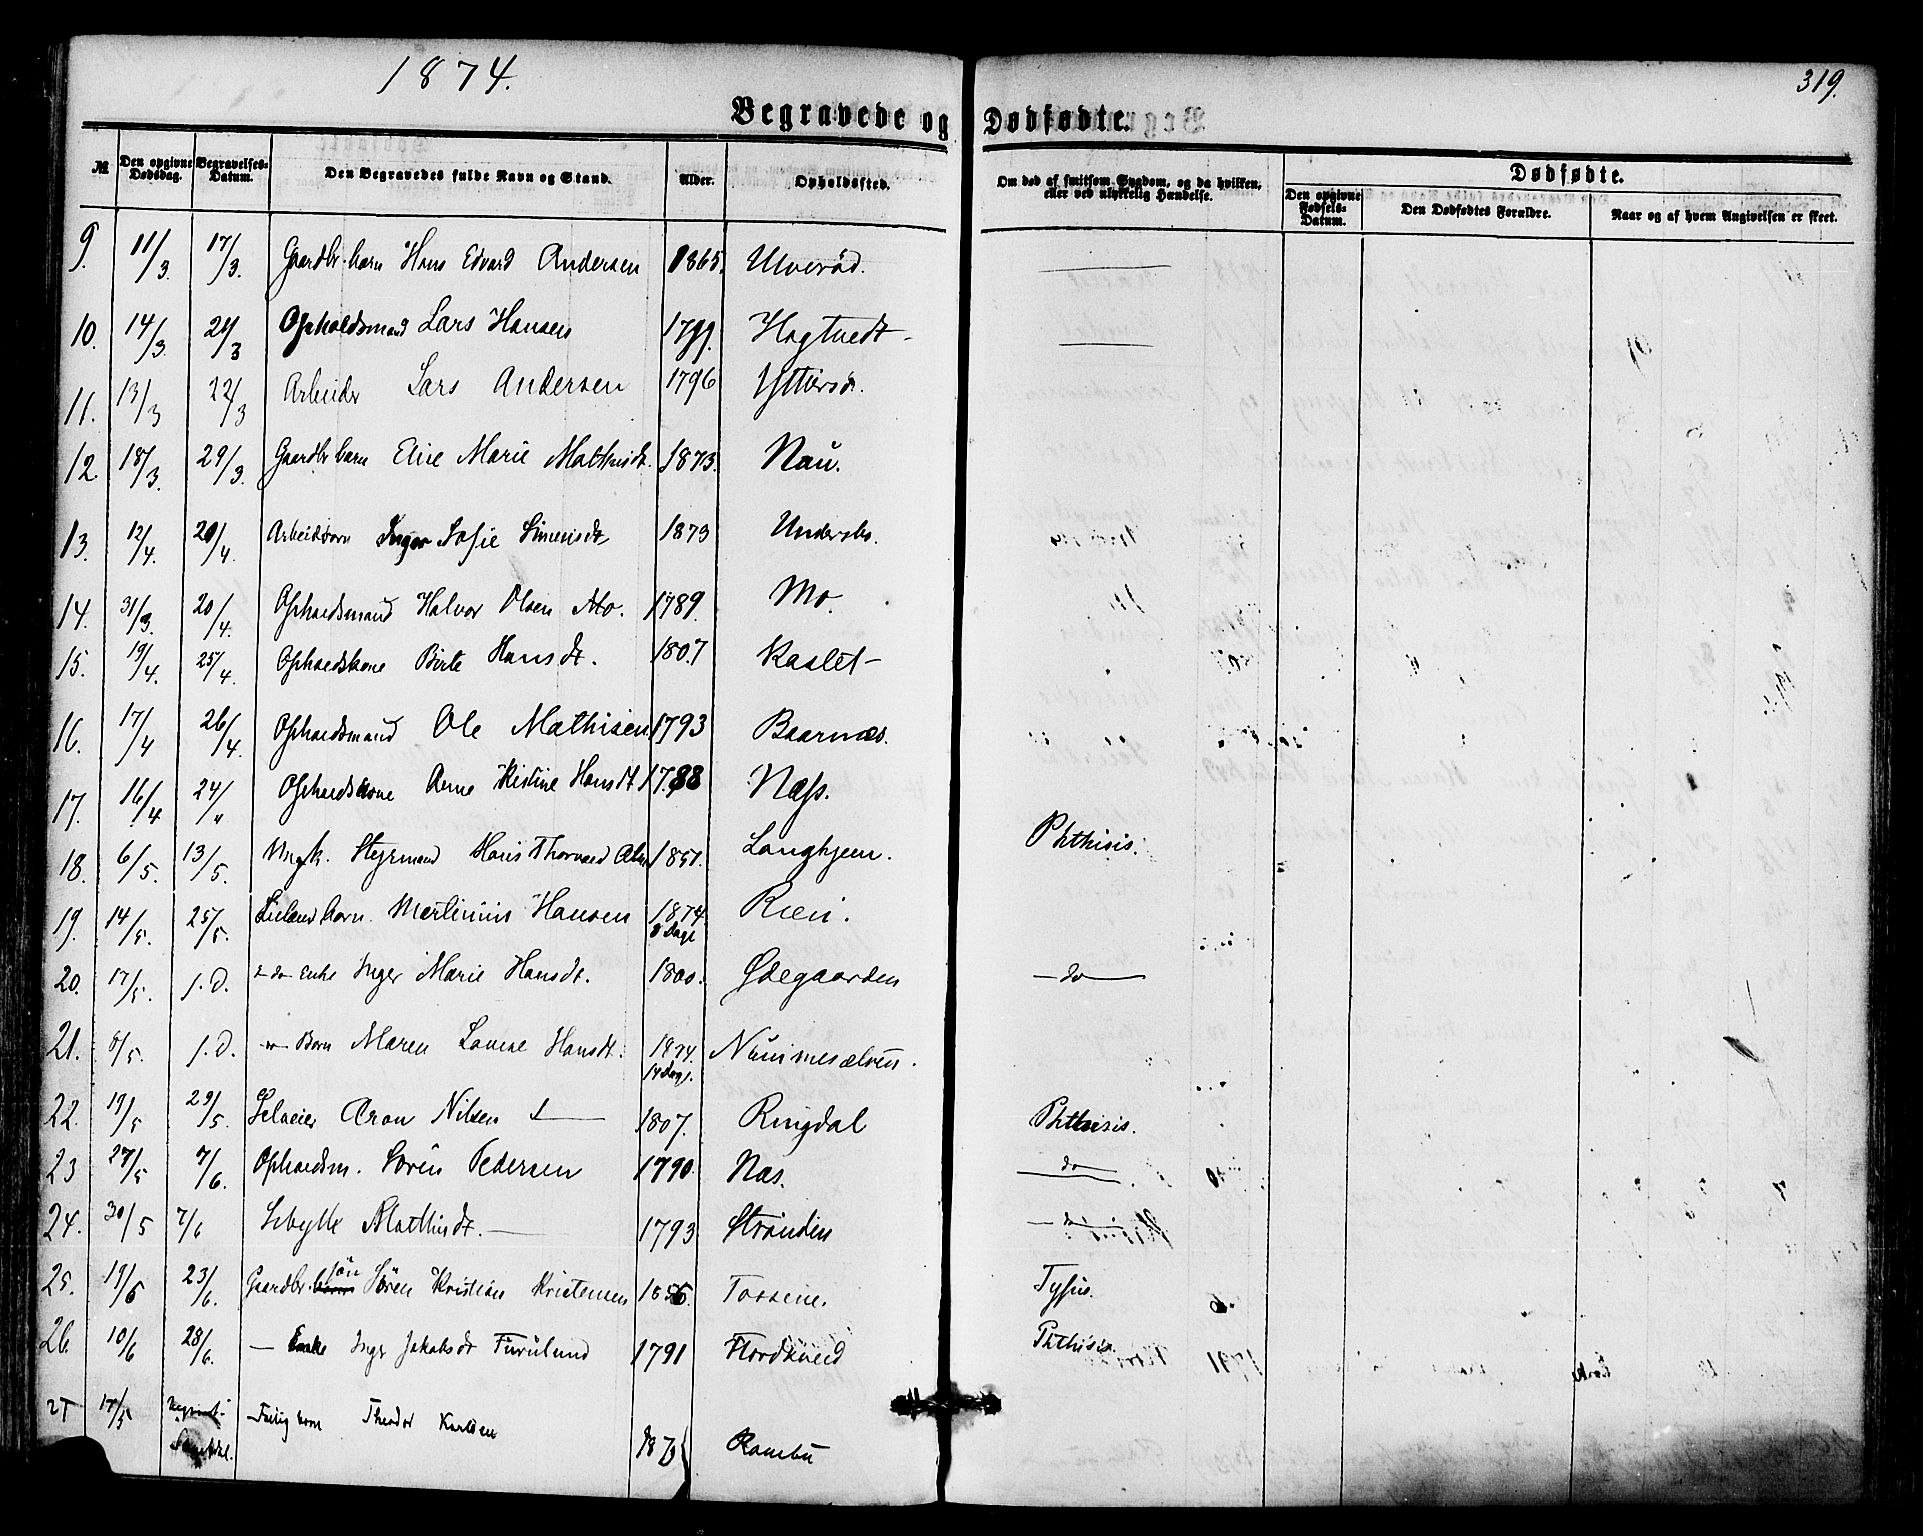 1874.
319.
Begravede og Dødfødte.
№ Den opgivne Dødsdag. Begravelses-Datum. Den Begravedes fulde Navn og Stand. Alder. Opholdssted. Om død af smitsom Sygdom, og da hvilken, eller ved ulykkelig Hændelse. Dødfødte.
Den opgivne Fødsels-Datum. Den Dødfødtes Forældre. Naar og af hvem Angivelsen er skeet.
9. 11/3. 17/3. Gaardbr. barn Hans Edvard Andersen 1865. Ulverød.
10. 14/3. 24/3 Opholdsmand Lars Hansen 1799. Hogtvedt
11. 13/3 22/3 Arbeider Lars Andersen 1796
12. 18/3. 29/3. Gaardbr barn Eline Marie Mathisdt. 1873. Nau.
13. 12/4. 20/4. Arbeidsbarn Inger Sofie Simensdt. 1873
14. 31/3. 20/4. Opholdsmand Halvor Olsen Mo. 1789. Mo.
15. 19/4. 25/4. Opholdskone Birte Hansdt. 1807 Kaslet
16. 17/4 26/4. Opholdsmand Ole Mathisen 1793 Baarnæs.
17. 16/4 24/4 Opholdskone Anne Kistine Hansdt 1788 Næss.
18. 6/5. 13/5. Ungk. Styrmand Hans Thorvald 1851. Langhjem. Phthisis.
19. 14/5. 25/5. barn. Martinius Hansen 1874. 8 Dage Rieri.
20. 17/5. s. D. do Enke Inger Marie Hansdt. 1800. Ødegaarden do
21. 8/5. s. D. Barn Maren Lovise Hansdt. 1874. 14 Dage.
22. 19/5 29/5. Selveier Aron Nilsen 1807. Ringdal Phthisis.
23 27/5 7/6. Opholdsm. Sören Pedersen 1790 Næs. do
24. 30/5 7/6 Sibylle Mathisdt. 1793 Stranden do
25. 19/6 23/6. Gaardbr. sön Sören Kristian Kristensen 1856. Tossene. Tyfus.
26. 10/6 28/6. Enke Inger Jakobsdt Furulund 1791 Phthisis.
27 17/5 Fattig barn Theodor Karlsen 187 Rambu